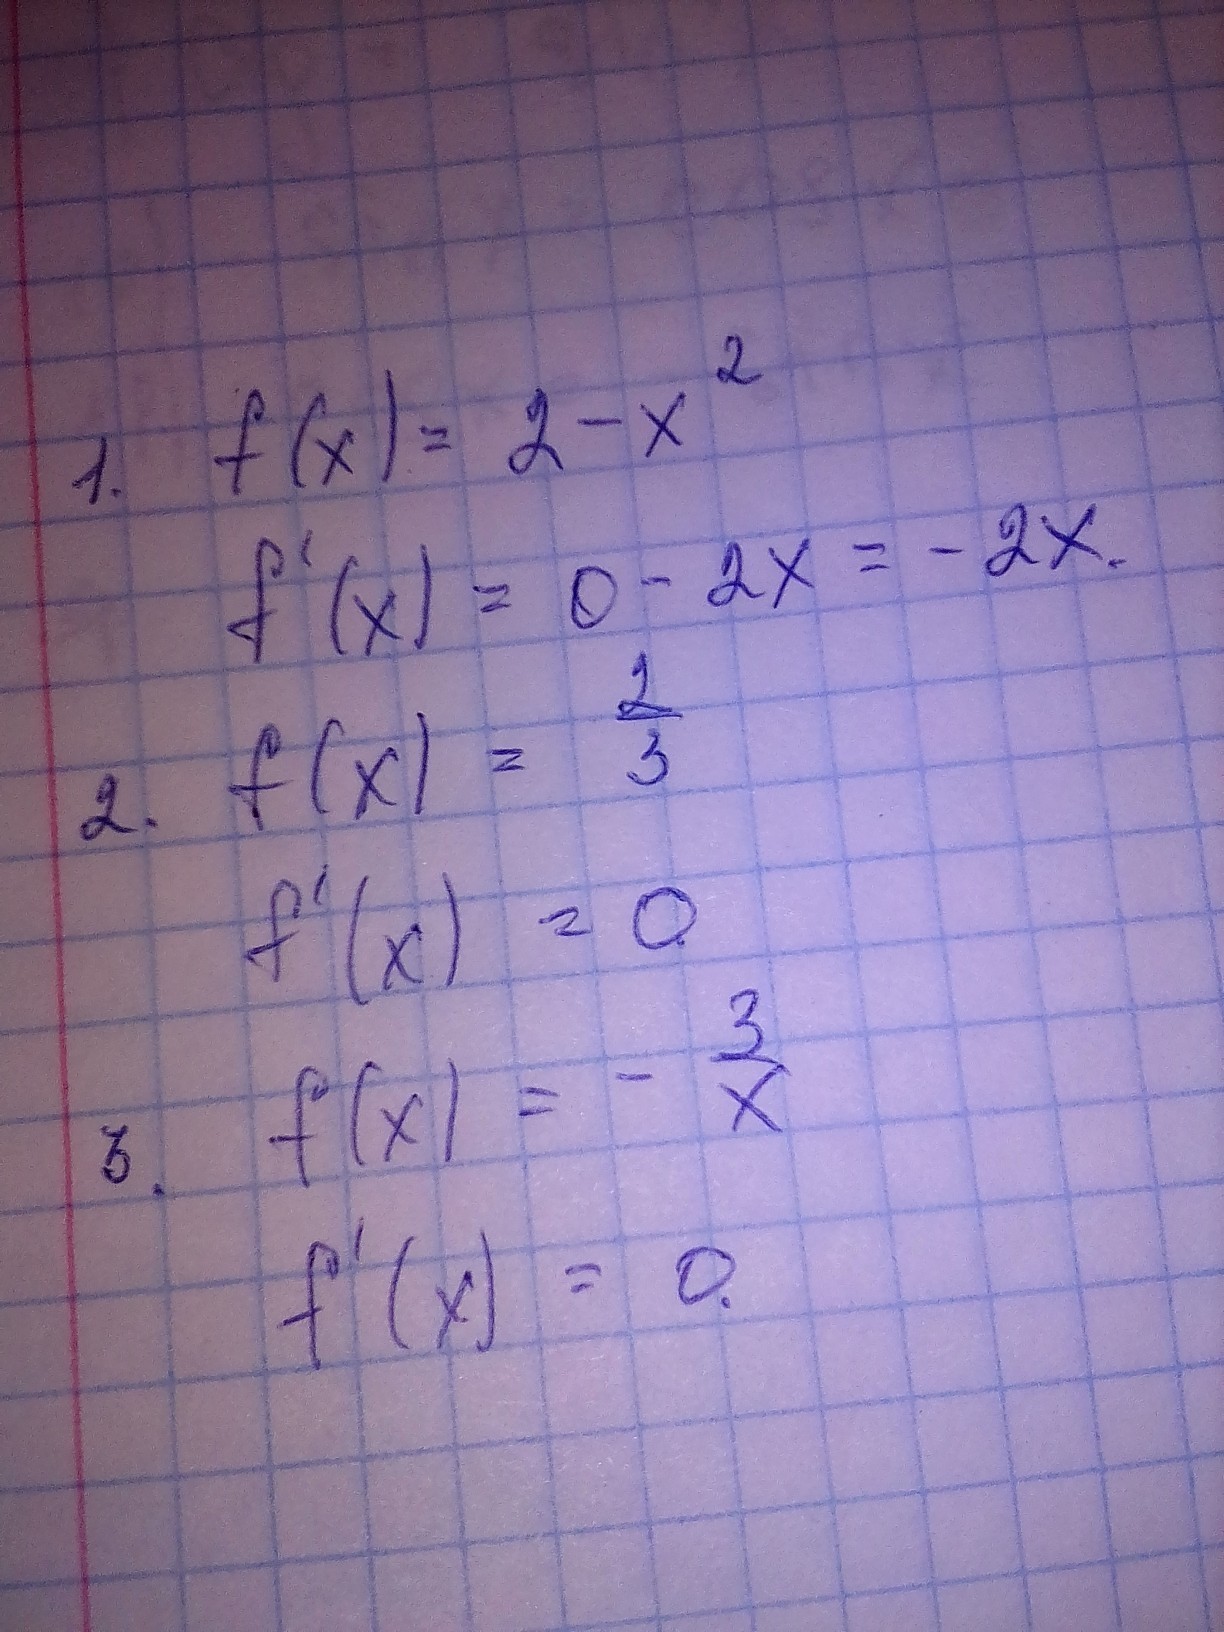 1. f(x) = 2 - x²
f'(x) = 0 - 2x = - 2x.
2. f(x) = 2/3
f'(x) = 0.
3. f(x) = - 3/x
f'(x) = 0.